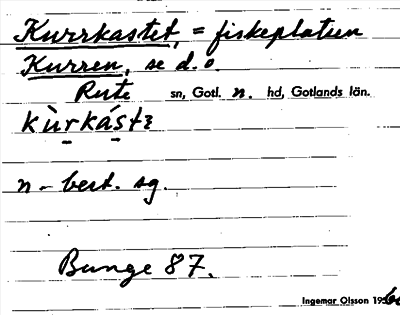 Kurrkastet, = fiskeplatsen
Kurren, se d. o.
Rute sn, Gotl. n. hd, Gotlands län.
kùrkástɛ
n – best. sg.
Bunge 87.
Ingemar Olsson 1960